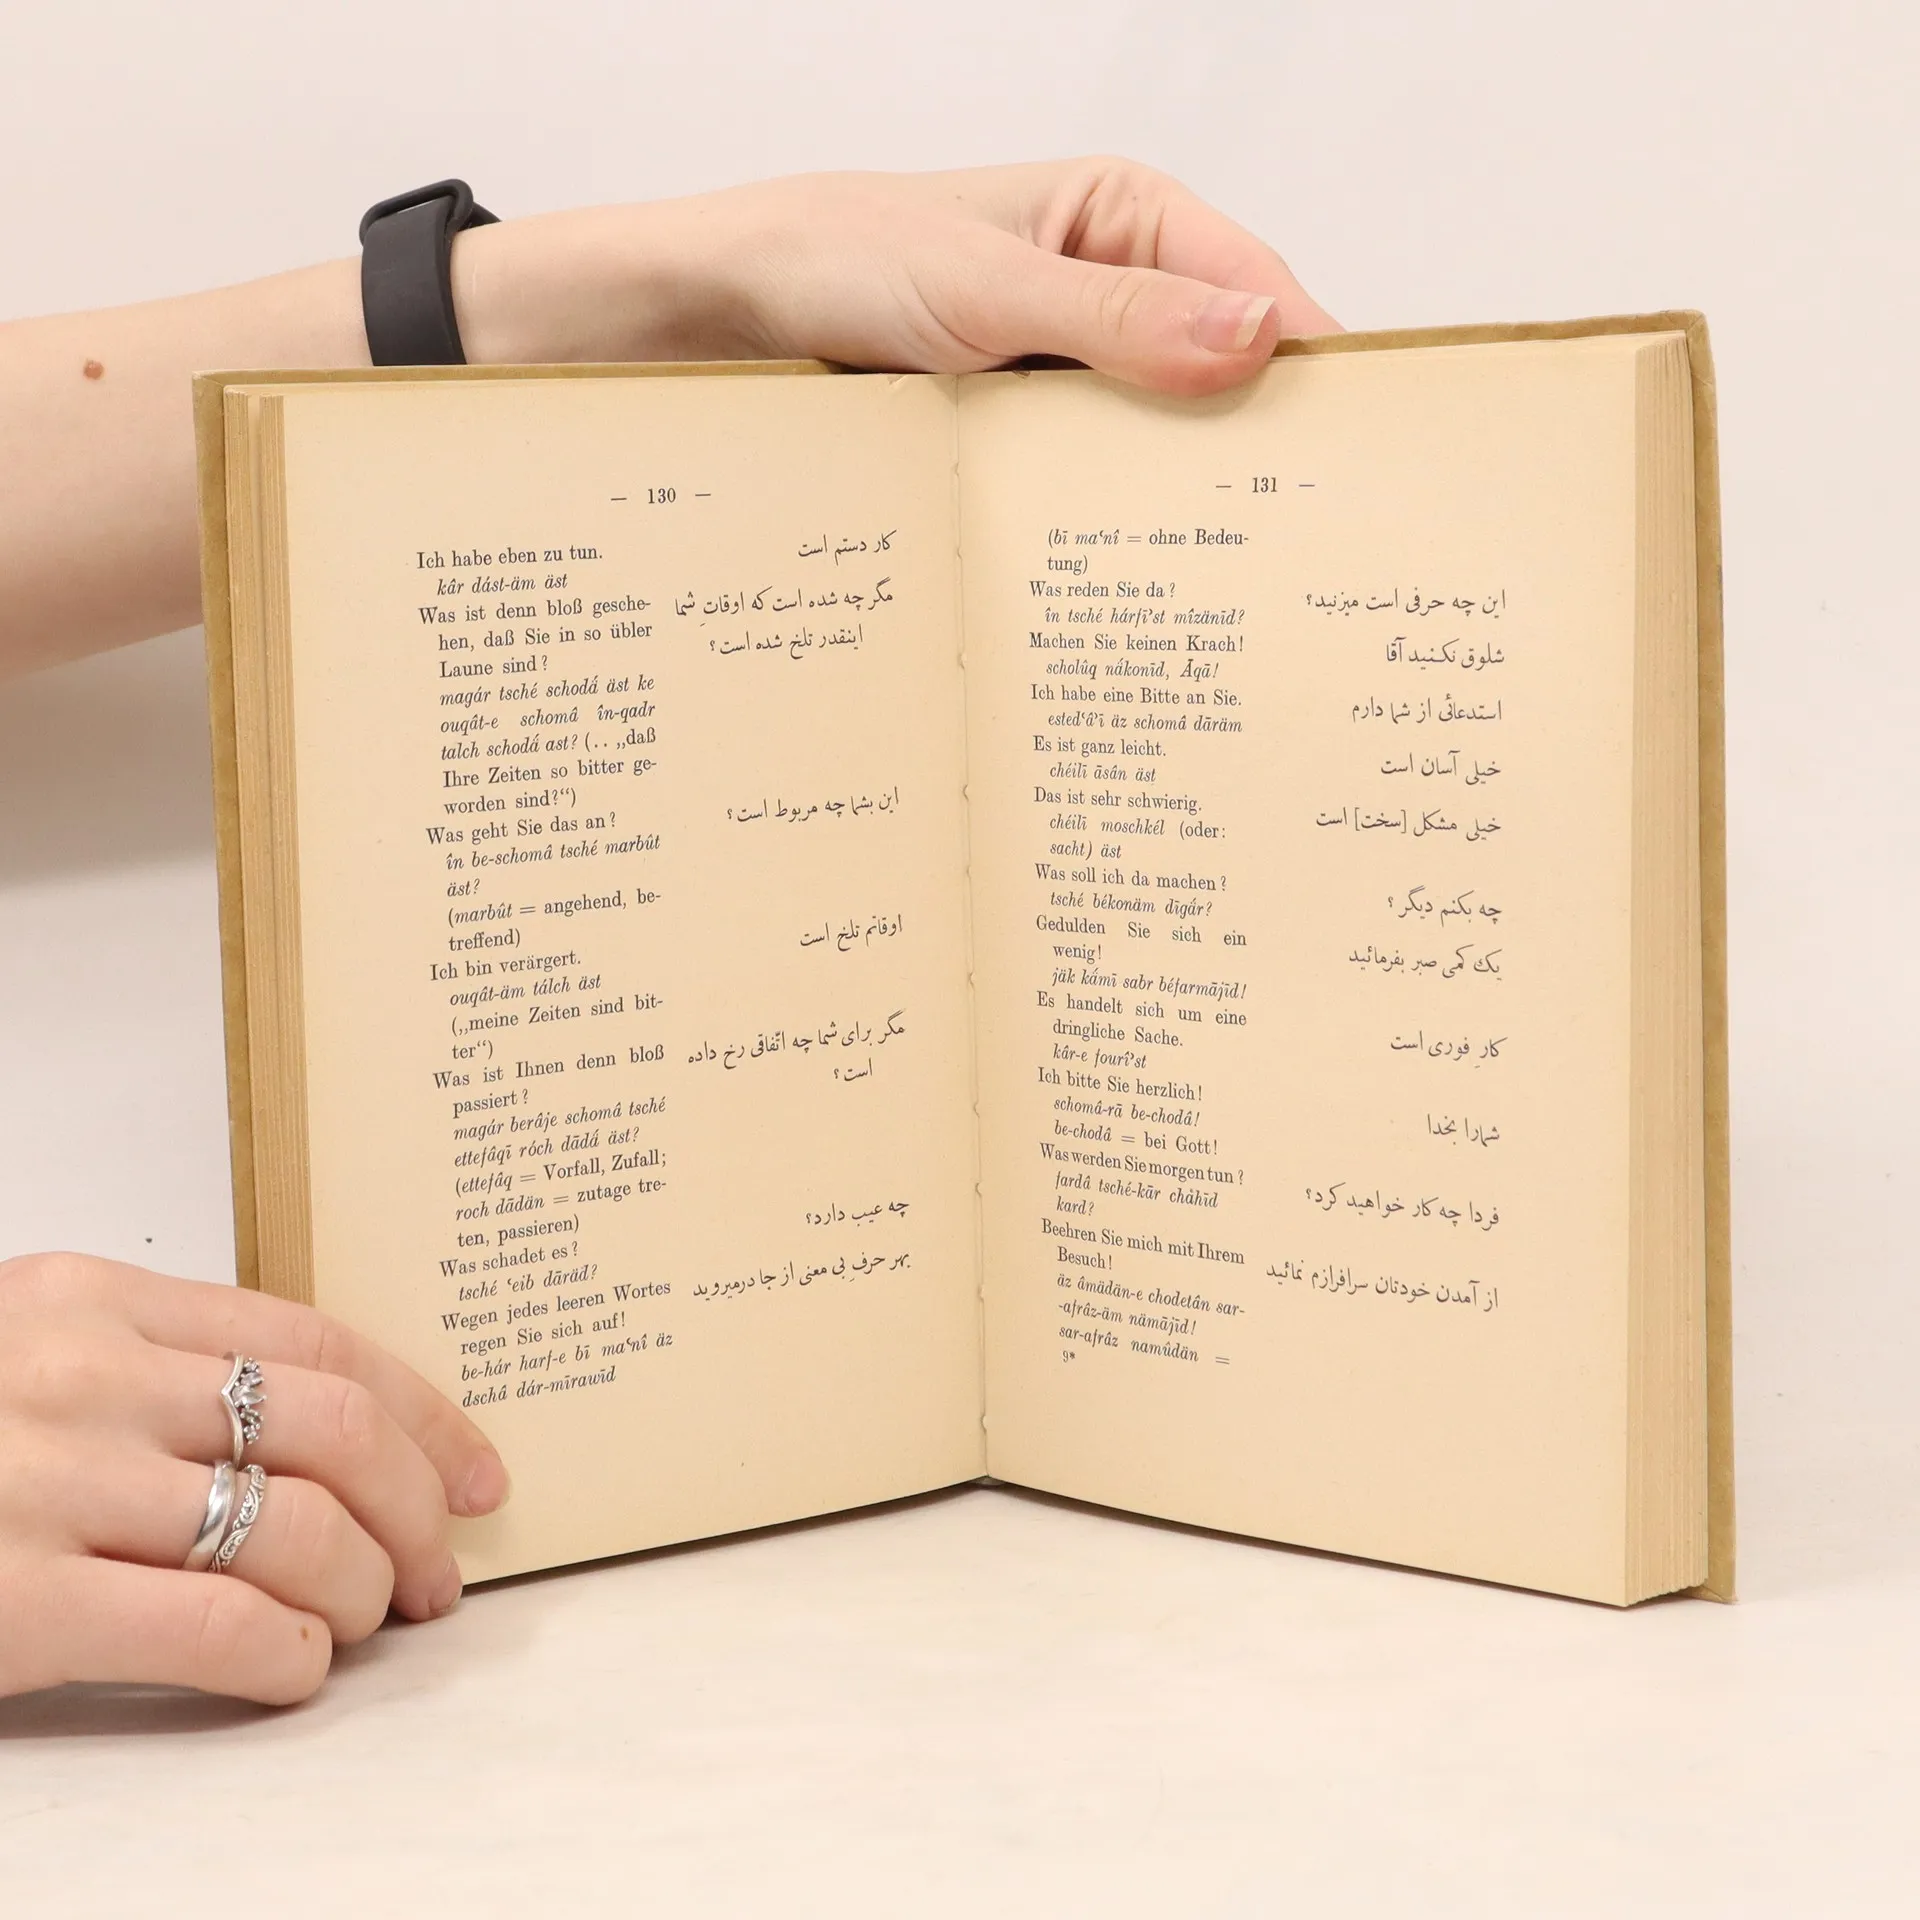 — 130 —
Ich habe eben zu tun.
kâr dást-äm äst
Was ist denn bloß gesche-
hen, daß Sie in so übler
Laune sind?
magár tsché schodấ äst ke
ouqât-e schomâ în-qadr
talch schodấ ast? (.. „daß
Ihre Zeiten so bitter ge-
worden sind?“)
Was geht Sie das an?
în be-schomâ tsché marbût
äst?
(marbût = angehend, be-
treffend)
Ich bin verärgert.
ouqât-äm tálch äst
(„meine Zeiten sind bit-
ter“)
Was ist Ihnen denn bloß
passiert?
magár berâje schomâ tsché
ettefâqī róch dādấ äst?
(ettefâq = Vorfall, Zufall;
roch dādän = zutage tre-
ten, passieren)
Was schadet es?
tsché ‘eib dāräd?
Wegen jedes leeren Wortes
regen Sie sich auf!
be-hár harf-e bī ma‘nî äz
dschâ dár-mīrawīd
کار دستم است
مگر چه شده است که اوقاتِ شما
اینقدر تلخ شده است؟
این بشما چه مربوط است؟
اوقاتم تلخ است
مگر برای شما چه اتّفاقی رخ داده
است؟
چه عیب دارد؟
بهر حرفِ بی معنی از جا درمیروید
— 131 —
(bī ma‘nî = ohne Bedeu-
tung)
Was reden Sie da?
în tsché hárfī’st mîzänīd?
Machen Sie keinen Krach!
scholûq nấkonīd, Āqā!
Ich habe eine Bitte an Sie.
ested‘â’ī äz schomâ dāräm
Es ist ganz leicht.
chéilī āsân äst
Das ist sehr schwierig.
chéilī moschkél (oder:
sacht) äst
Was soll ich da machen?
tsché békonäm dīgấr?
Gedulden Sie sich ein
wenig!
jäk kấmī sabr béfarmājīd!
Es handelt sich um eine
dringliche Sache.
kâr-e fourî’st
Ich bitte Sie herzlich!
schomâ-rā be-chodâ!
be-chodâ = bei Gott!
Was werden Sie morgen tun?
fardâ tsché-kār châhīd
kard?
Beehren Sie mich mit Ihrem
Besuch!
äz âmädän-e chodetân sar-
-afrâz-äm nämājīd!
sar-afrâz namûdän =
9*
این چه حرفی است میزنید؟
شلوق نکنید آقا
استدعائی از شما دارم
خیلی آسان است
خیلی مشکل [سخت] است
چه بکنم دیگر؟
یك کمی صبر بفرمائید
کارِ فوری است
شمارا بخدا
فردا چه کار خواهید کرد؟
از آمدن خودتان سرافرازم نمائید